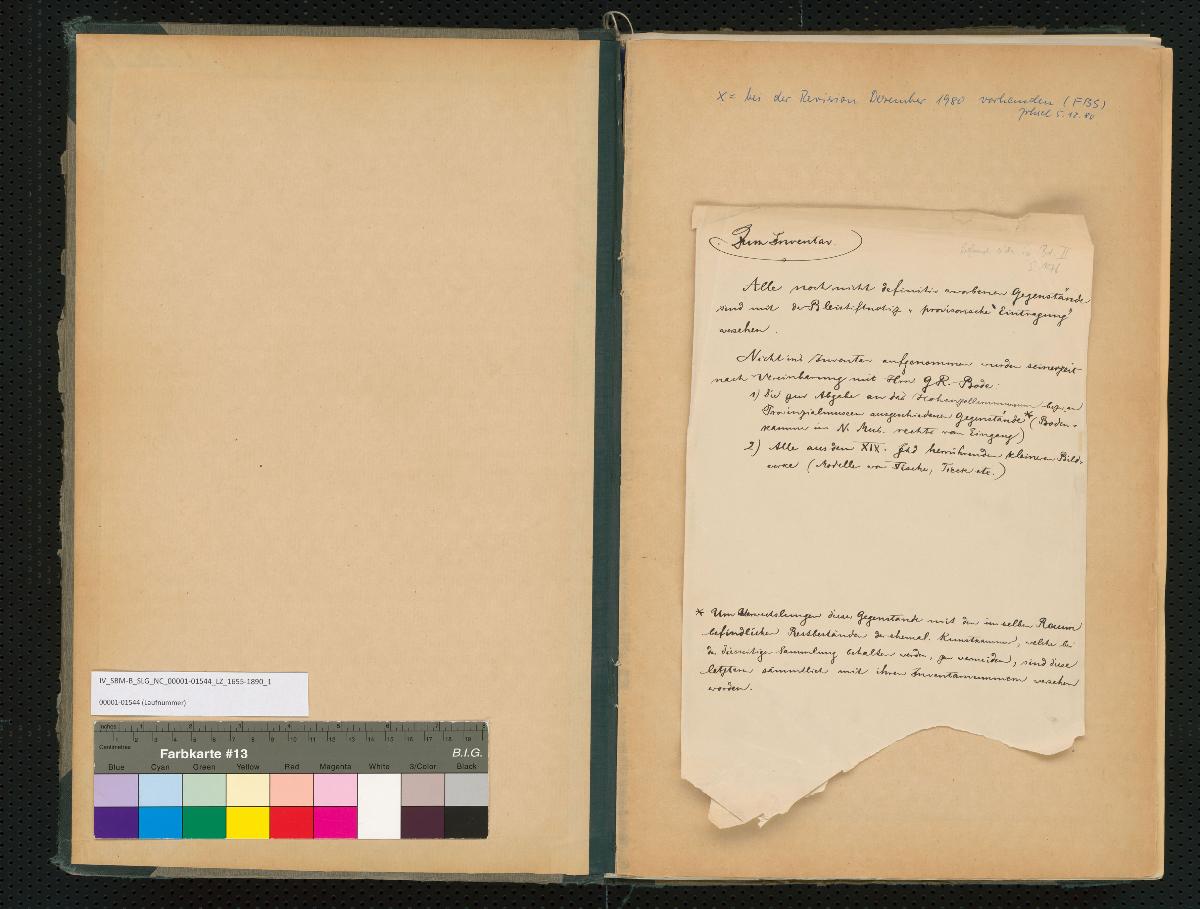 x = bei der Revision Dezember 1980 vorhanden (FBS)
5.12.80
Zum Inventar.
in Bd. II
Alle noch nicht definitiv erworbenen Gegenstände
sind mit der Bleistiftnotiz „provisorische Eintragung"
versehen.
Nicht ins Inventar aufgenommen wurden seinerzeit
nach Vereinbarung mit Hrn G.R. Bode:
1) Die zur Abgabe an das Hohenzollernmuseum bezw. an
Provinzialmuseen ausgeschiedenen Gegenstände* (Boden-
kammer im N. Mus. rechts vom Eingang)
2) Alle aus dem XIX. Jhd herrührenden kleineren Bild-
werke (Modelle von Tieck etc.)
* Um Verwechslungen dieser Gegenstände mit den im selben Raum
befindlichen Restbeständen der ehemal. Kunstkammer, welche bei
der diesseitigen Sammlung behalten werden, zu vermeiden, sind diese
letzteren sämmtlich mit ihren Inventarnummern versehen
worden.
IV_SBM-B_SLG_NC_00001-01544_LZ_1655-1890_1
00001-01544 (Laufnummer)
Inches 1 2 3 4 5 6 7 8
Centimetres 1 2 3 4 5 6 7 8 9 10 11 12 13 14 15 16 17 18 19
Farbkarte #13 B.I.G.
Blue Cyan Green Yellow Red Magenta White 3/Color Black